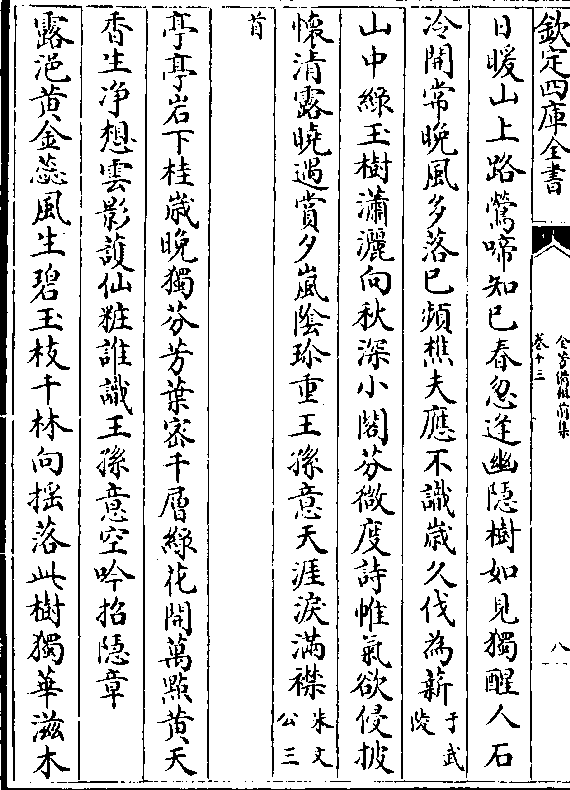 欽定四庫全書
全芳備祖前集
卷十三
八
日暖山上路鶯啼知已春忽逢幽隱樹如見獨醒人石
冷開常晚風多落已頻樵夫應不識歲久伐為薪于武陵
山中綠玉樹瀟灑向秋深小閣芬微度詩帷氣欲侵披
懷清露曉遇賞夕嵐陰珍重王孫意天涯淚滿襟朱文公三
首
亭亭岩下桂歲晚獨芬芳葉密千層綠花開萬點黄天
香生净想雲影護仙粧誰識王孫意空吟招隱章
露浥黄金蕊風生碧玉枝千林向揺落此樹獨華滋木